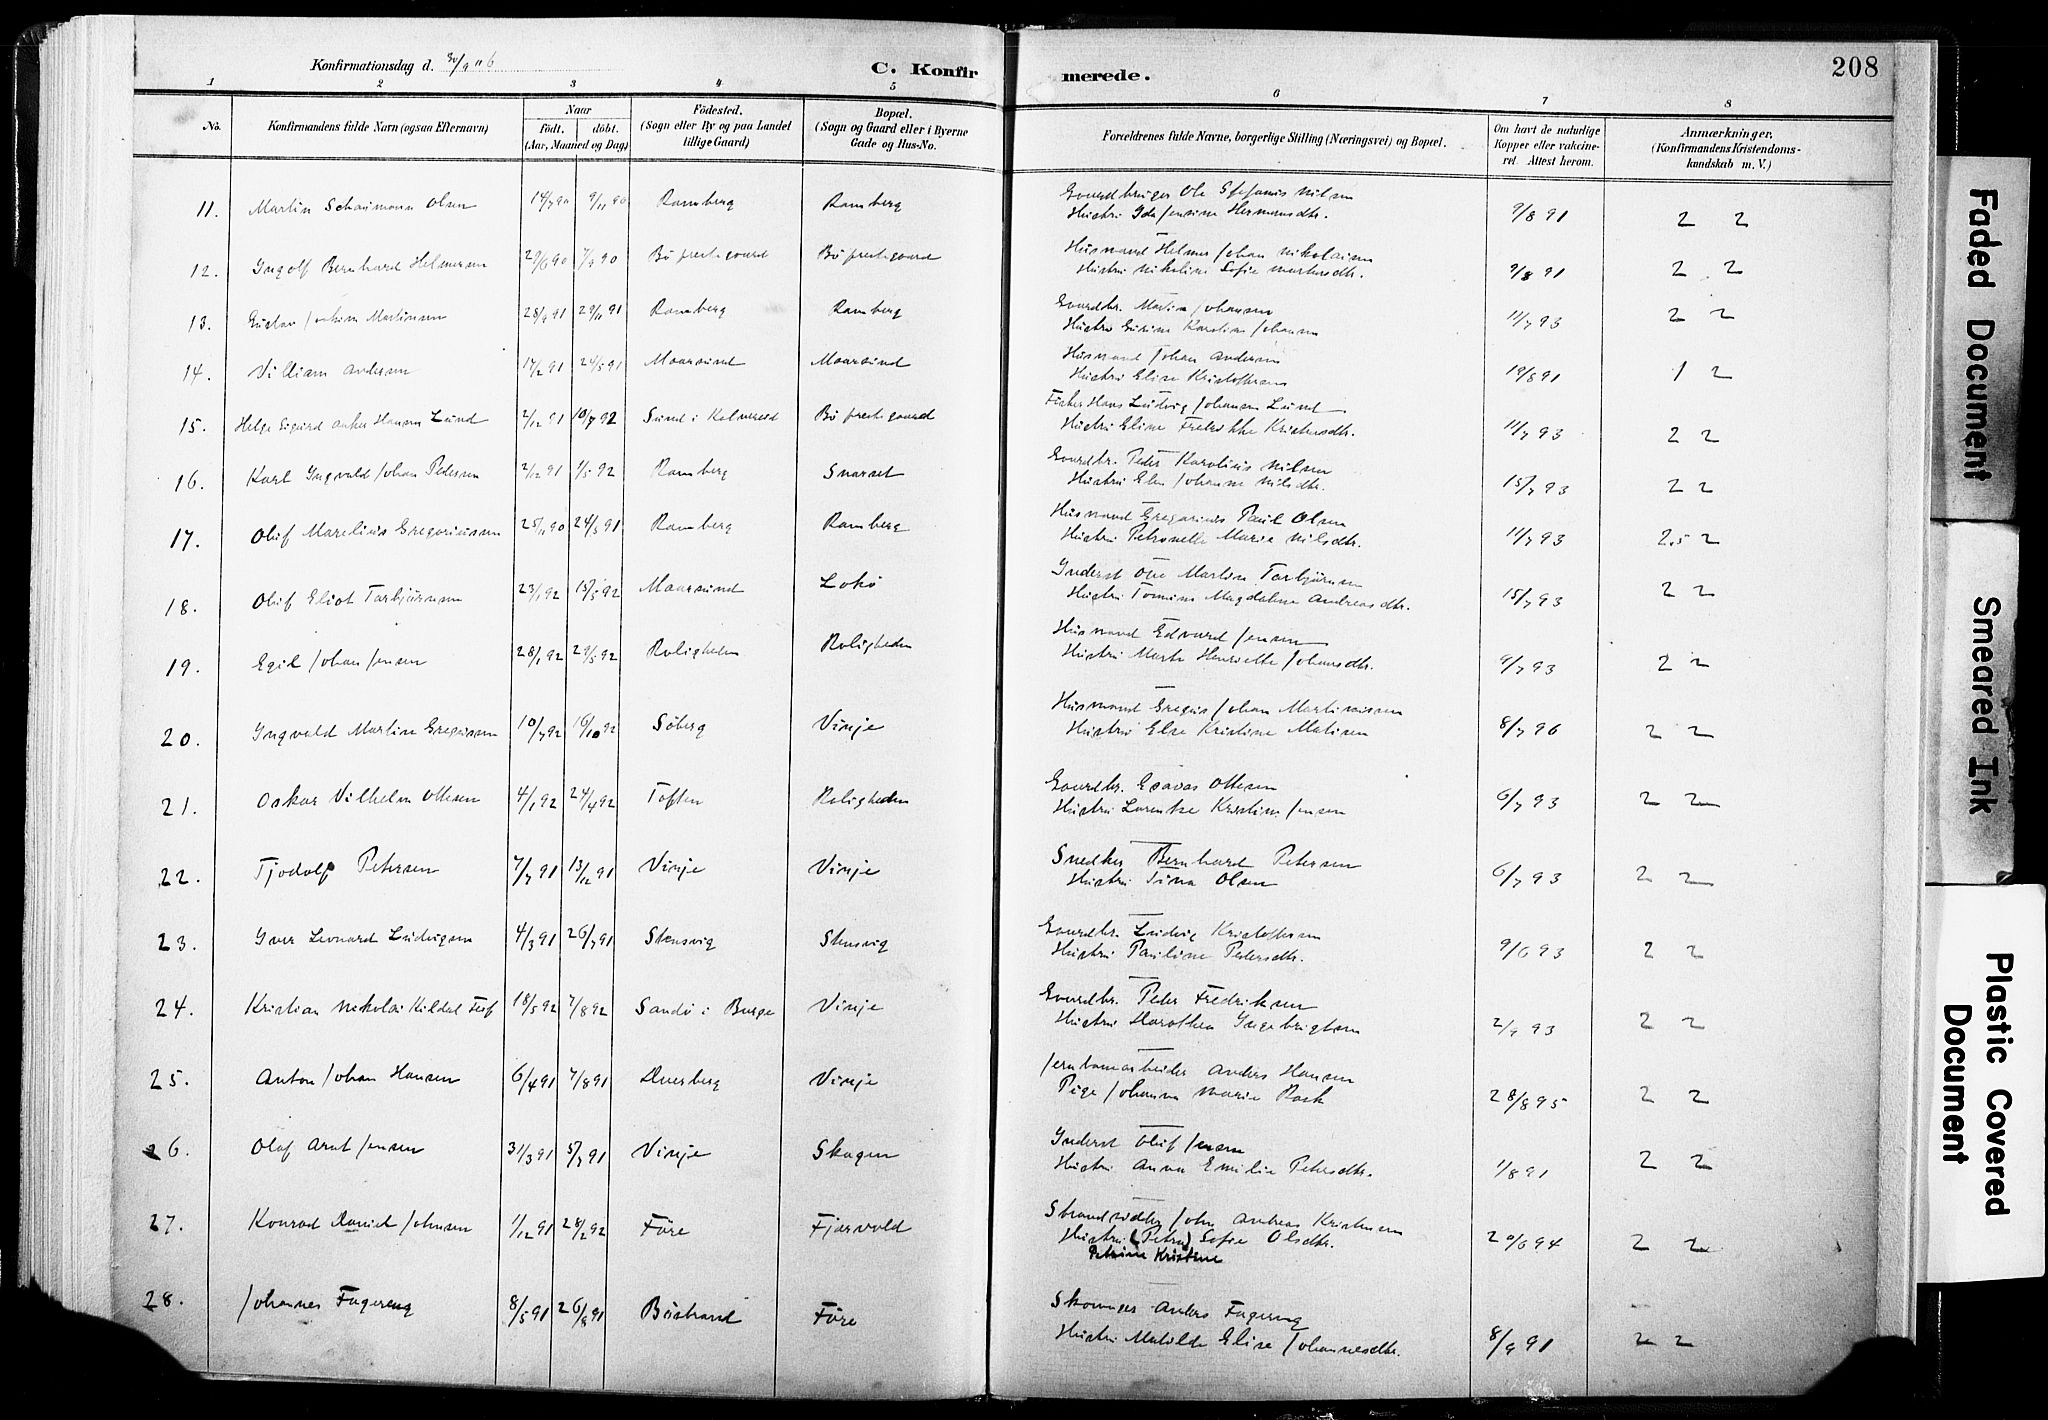 Konfirmationsdag d. 30/9 06
C. Konfirmerede.
208
1 2 3 4 5 6 7 8
No. Konfirmandens fulde Navn (ogsaa Efternavn) Naar födt. döbt. (Aar, Maaned og Dag) Födested. (Sogn eller By og paa Landet tillige Gaard) Bopæl. (Sogn og Gaard eller i Byerne Gade og Hus-No. Forældrenes fulde Navne, borgerlige Stilling (Næringsvei) og Bopæl. Om havt de naturlige Kopper eller vakcineret. Attest herom. Anmærkninger. (Konfirmandens Kristendomskundskab m. V.)
11. Martin Olsen 14/7 90 9/11 90 Ramberg Ramberg Gaardbruger Ole Stefanus Nilsen
Hustru Ida Jensine Hermansdtr. 9/8 91 2 2
12. Ingolf Bernhard Helmersen 29/6 90 7/9 90 Bö prestegaard Bö prestegaard Husmand Helmer Johan Nikolaisen
Hustru Nikoline Sofie 9/8 91 2 2
13. Gustav Joakim Martinsen 28/9 91 29/11 91 Ramberg Ramberg Gaardbr. Martin Johansen
Hustru Karoline Johansen 11/7 93 2 2
14. Villiam Andersen 17/2 91 24/5 91 Maarsund Maarsund Husmand Johan Andersen
Hustru Elise Kristoffersen 19/8 91 1 2
15. Helge Sigurd Anker Hansen Lund 2/12 91 10/7 92 Sund i Bö prestegaard Fisker Hans Ludvig Johansen Lund
Hustru Eline Fredrikke 11/7 93 2 2
16. Karl Ingvald Johan Pedersen 2/12 91 1/5 92 Ramberg Snarset Gaardbr. Peder Karolius Nilsen
Hustru Elen Johanne Nilsdtr. 15/7 93 2 2
17. Oluf Marelius Gregoriussen 25/11 90 24/5 91 Ramberg Ramberg Husmand Gregorius Paul Olsen
Hustru Petronelle Marie Nilsdtr. 11/7 93 2,5 2
18. Oluf Eliot Torbjörnsen 23/1 92 15/5 92 Maarsund Lokö Inderst Ole Martin Torbjörnsen
Hustru Tomine Magdalene Andreasdtr. 15/7 93 2 2
19. Egil Johan Jensen 28/1 92 29/5 92 Roligheden Roligheden Husmand Edvard Jensen
Hustru Marte Henriette Johansdtr. 9/7 93 2 2
20. Ingvald Martin Gregusen 10/7 92 16/10 92 Söberg Vinje Husmand Gregus Johan Martinussen
Hustru Else Kristine Matisen 8/7 96 2 2
21. Oskar Vilhelm Ottesen 4/1 92 24/4 92 Toften Roligheden Gaardbr. Esaias Ottesen
Hustru Lorentse Kristine Jensen 6/7 93 2 2
22. Tjodolf Petersen 7/7 91 13/12 91 Vinje Vinje Snedker Bernhard Petersen
Hustru Tina Olsen 6/7 93 2 2
23. Iver Leonard Ludvigsen 4/3 91 26/7 91 Stensvig Stensvig Gaardbr. Ludvig Kristoffersen
Hustru Pauline Pedersdtr. 9/6 93 2 2
24. Kristian Nikolai Kildal 18/5 92 7/8 92 Sandö i Vinje Gaardbr. Peter Fredriksen
Hustru Dorothea Ingebrigtsen 2/9 93 2 2
25. Anton Johan Hansen 6/4 91 7/8 91 Dverberg Vinje Jernbanearbeider Anders Hansen
Pige Johanna Marie Rask 28/8 95 2 2
26. Olaf Arnt Jensen 31/3 91 5/7 91 Vinje Skagen Inderst Oluf Jensen
Hustru Anna Emilie Petersdtr. 1/8 91 2 2
27. Konrad Daniel Johnsen 1/12 91 28/2 92 Före Fjærvold Strandsidder John Andreas Kristensen
Hustru (Petra) Sofie Olsdtr. 20/6 94 2 2
Petrine Kristine
28. Johannes Fagereng 8/5 91 26/8 91 Böstrand Före Skomager Anders Fagereng
Hustru Matilde Elise Johannesdtr. 8/9 91 2 2
Faded Document
Smeared Ink
Plastic Covered Document